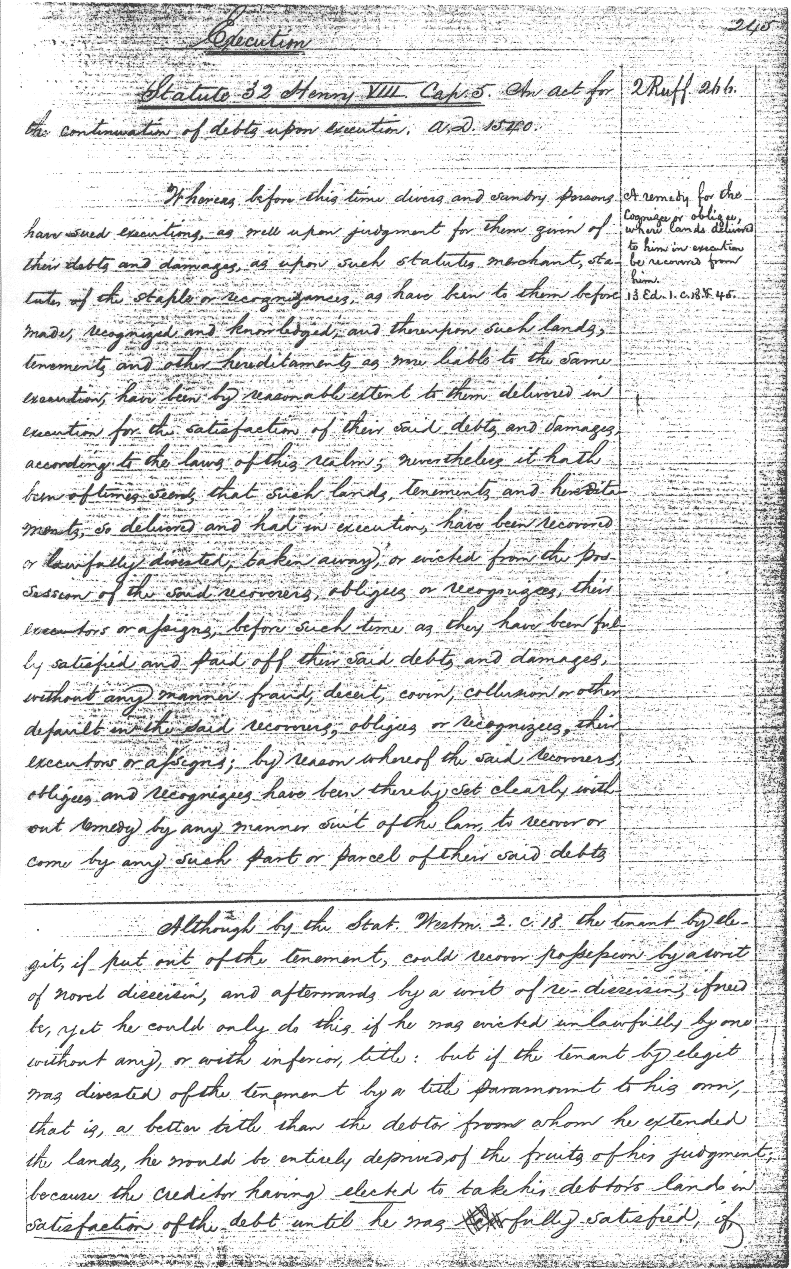 Execution
245
Statute 32 Henry VIII. Cap. 5. An act for
2 Ruff. 266.
the continuation of debts upon execution. A.D. 1540.
Whereas before this time divers and sundry persons
have sued executions, as well upon judgment for them given of
their debts and damages, as upon such statutes merchant, sta-
tutes of the staple or recognizances, as have been to them before
made, recognized and knowledged, and thereupon such lands,
tenements and other hereditaments as were liable to the same
execution, have been by reasonable extent to them delivered in
execution for the satisfaction of their said debts and damages,
according to the laws of this realm; nevertheless it hath
been oftimes seen, that such lands, tenements and heredita
ments, so delivered and had in execution, have been recovered
or lawfully divested, taken away, or evicted from the pos-
session of the said recoverers, obligees or recognizees, their
executors or assigns, before such time as they have been ful-
ly satisfied and paid off their said debts and damages,
without any manner fraud, deceit, covin, collusion or other
default in the said recoverers, obligees or recognizees, their
executors or assigns; by reason whereof the said recoverers,
obligees and recognizees have been thereby set clearly with-
out remedy by any manner suit of the law, to recover or
come by any such part or parcel of their said debts
A remedy for the
Cognizee or obligee,
where lands delivered
to him in execution
be recovered from
him.
13 Ed. 1. c. 18. & 45.
Although by the Stat. Westm. 2. c. 18 the tenant by ele-
git, if put out of the tenement, could recover possession by a writ
of novel disseisin, and afterwards by a writ of re-disseisin, if need
be, yet he could only do this if he was evicted unlawfully by one
without any, or with inferior, title: but if the tenant by elegit
was divested of the tenement by a title paramount to his own,
that is, a better title than the debtor from whom he extended
the lands, he would be entirely deprived of the fruits of his judgment;
because the creditor having elected to take his debtor's lands in
satisfaction of the debt until he was fully satisfied, if